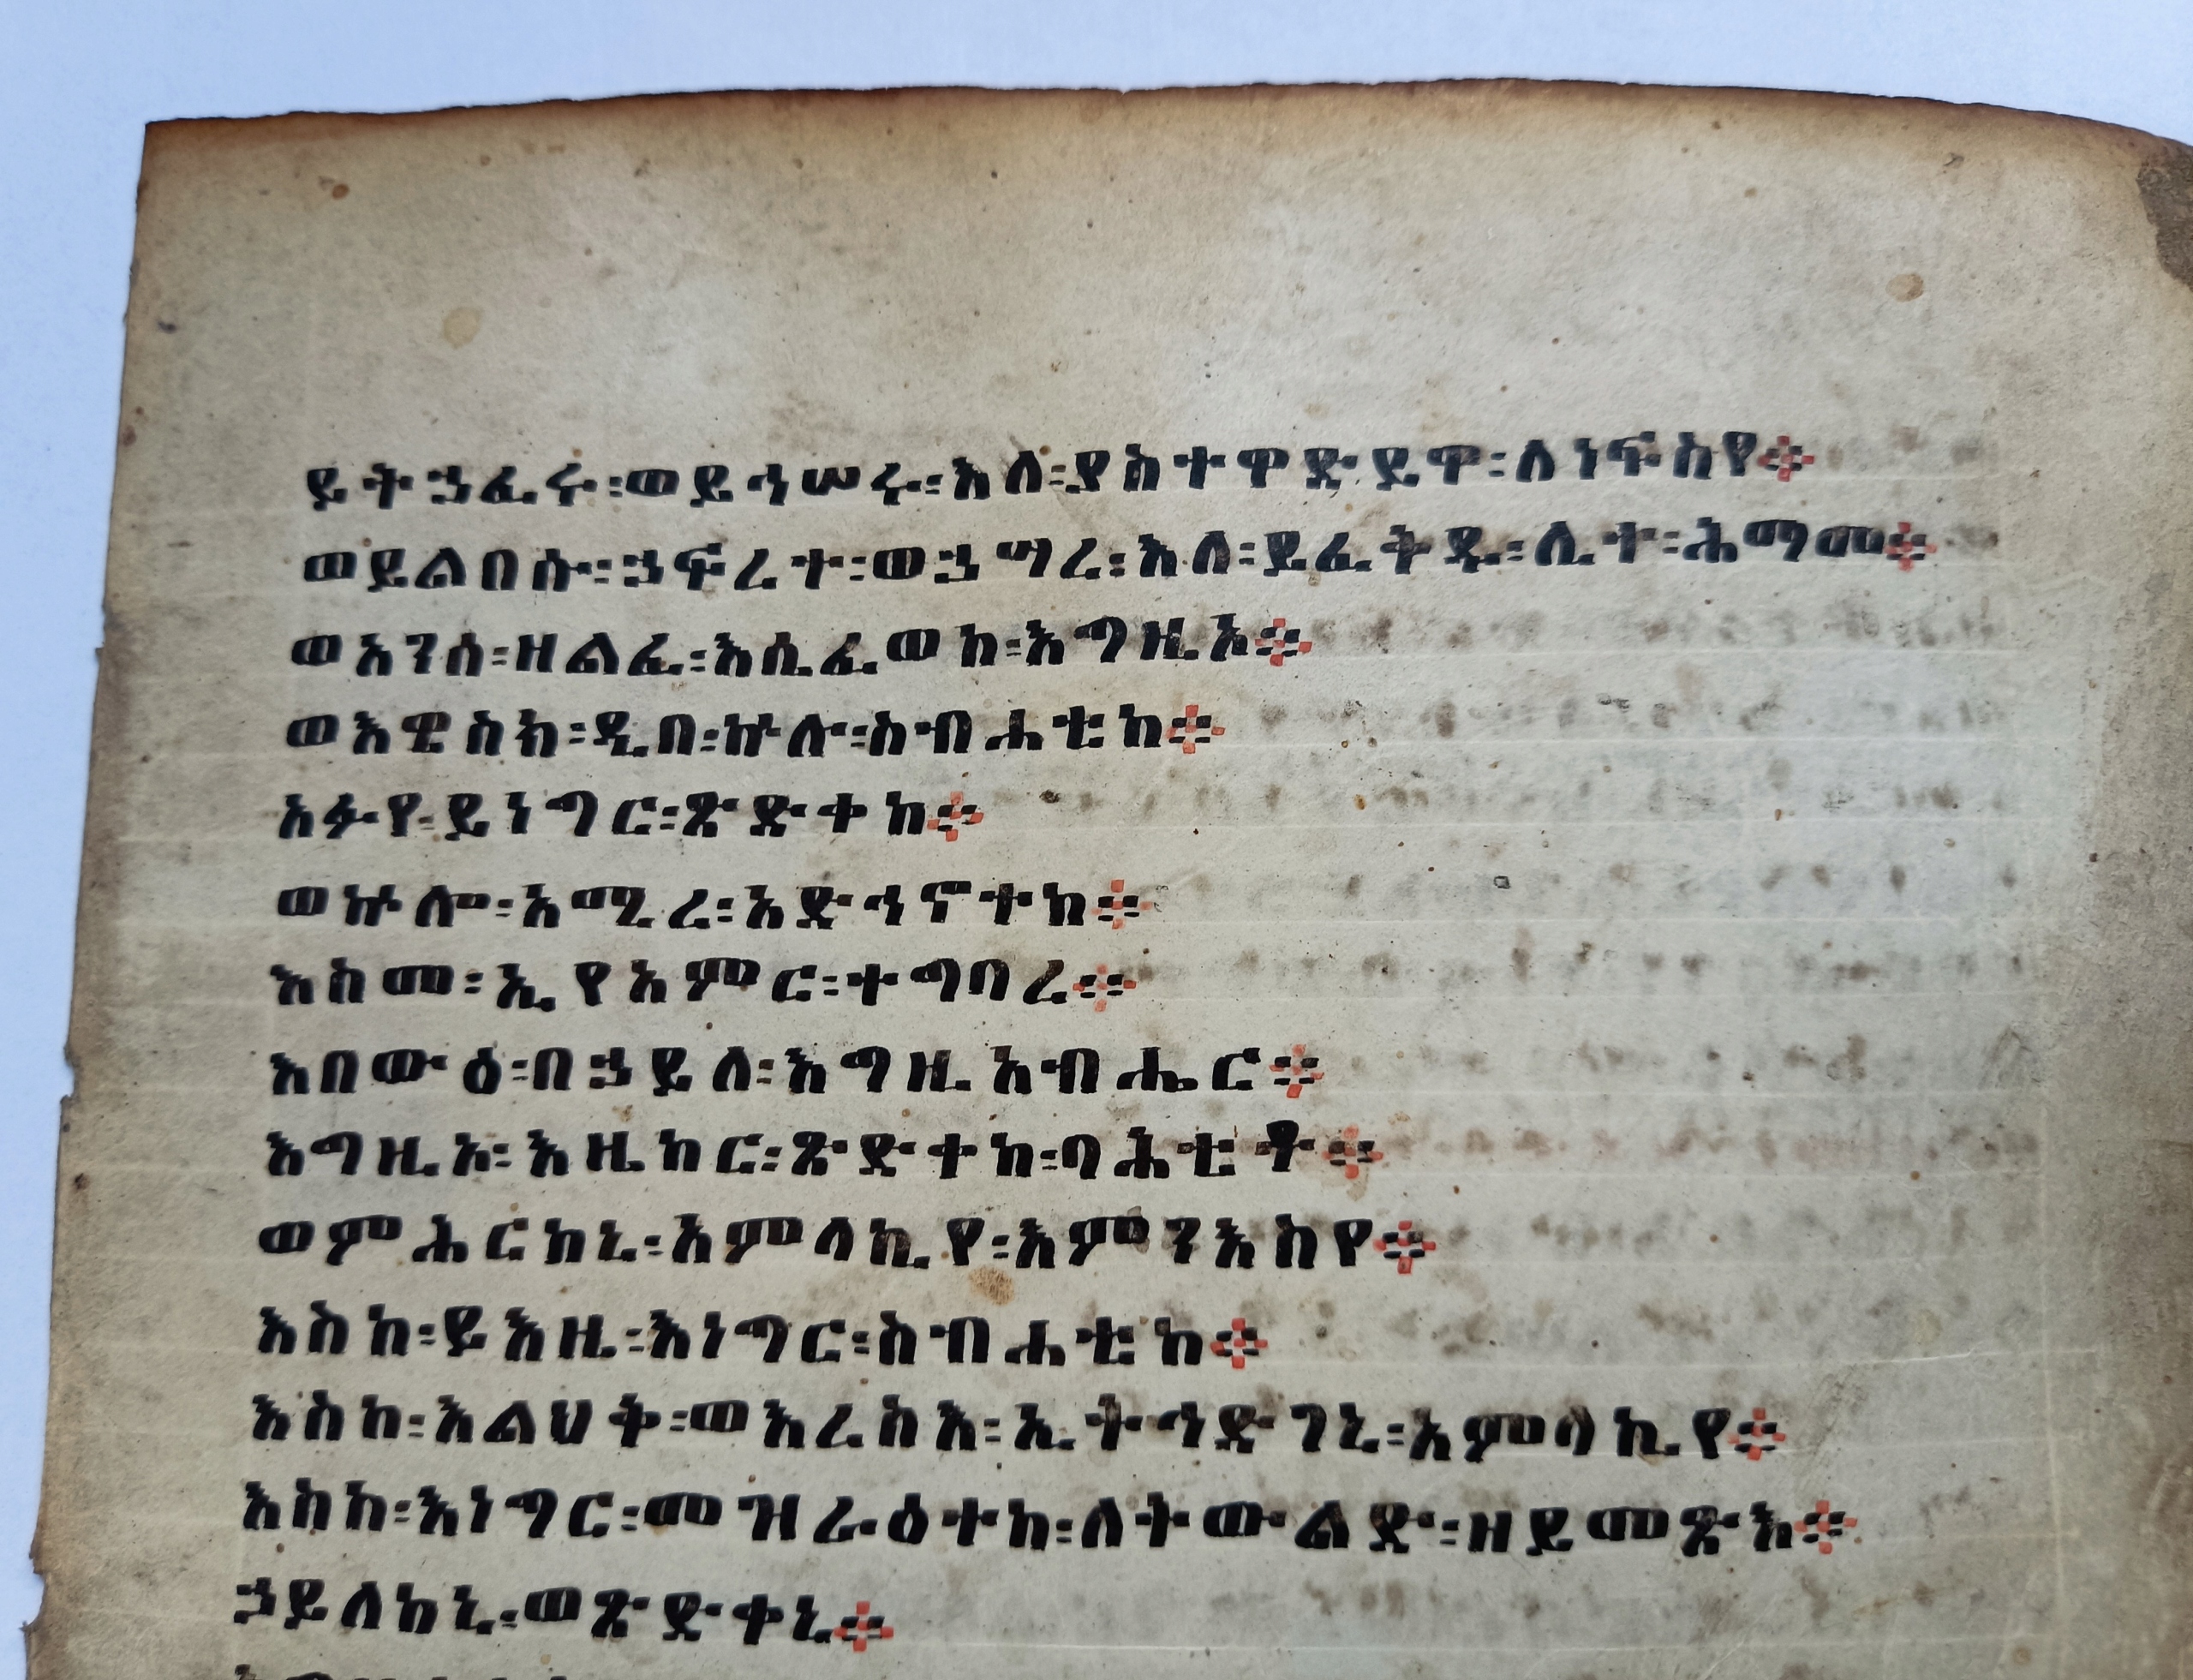 ይትኃፈሩ፡ወይኅሠሩ፡እለ፡ያስተዋድይዋ፡ለነፍስየ፨
ወይልበሱ፡ኃፍረተ፡ወኃሣረ፡እለ፡ይፈትዱ፡ሊተ፡ሕማመ፨
ወአንሰ፡ዘልፈ፡እሴፈወከ፡እግዚኦ፨
ወእዌስክ፡ዲበ፡ኵሉ፡ስብሐቲከ፨
አፉየ፡ይነግር፡ጽድቀከ፨
ወኵሎ፡አሚረ፡አድኅኖተከ፨
እስመ፡ኢየአምር፡ተግባረ፨
እበውዕ፡በኃይለ፡እግዚአብሔር፨
እግዚኦ፡እዜከር፡ጽድተከ፡ባሕቲቶ፨
ወምሕርከኒ፡አምላኪየ፡እምንእስየ፨
እስከ፡ይእዜ፡እነግር፡ስብሐቲከ፨
እስከ፡እልህቅ፡ወእረስእ፡ኢትኅድገኒ፡አምላኪየ፨
እስከ፡እነግር፡መዝራዕተከ፡ለትውልድ፡ዘይመጽእ፨
ኃይለከኒ፡ወጽድቀኒ፨